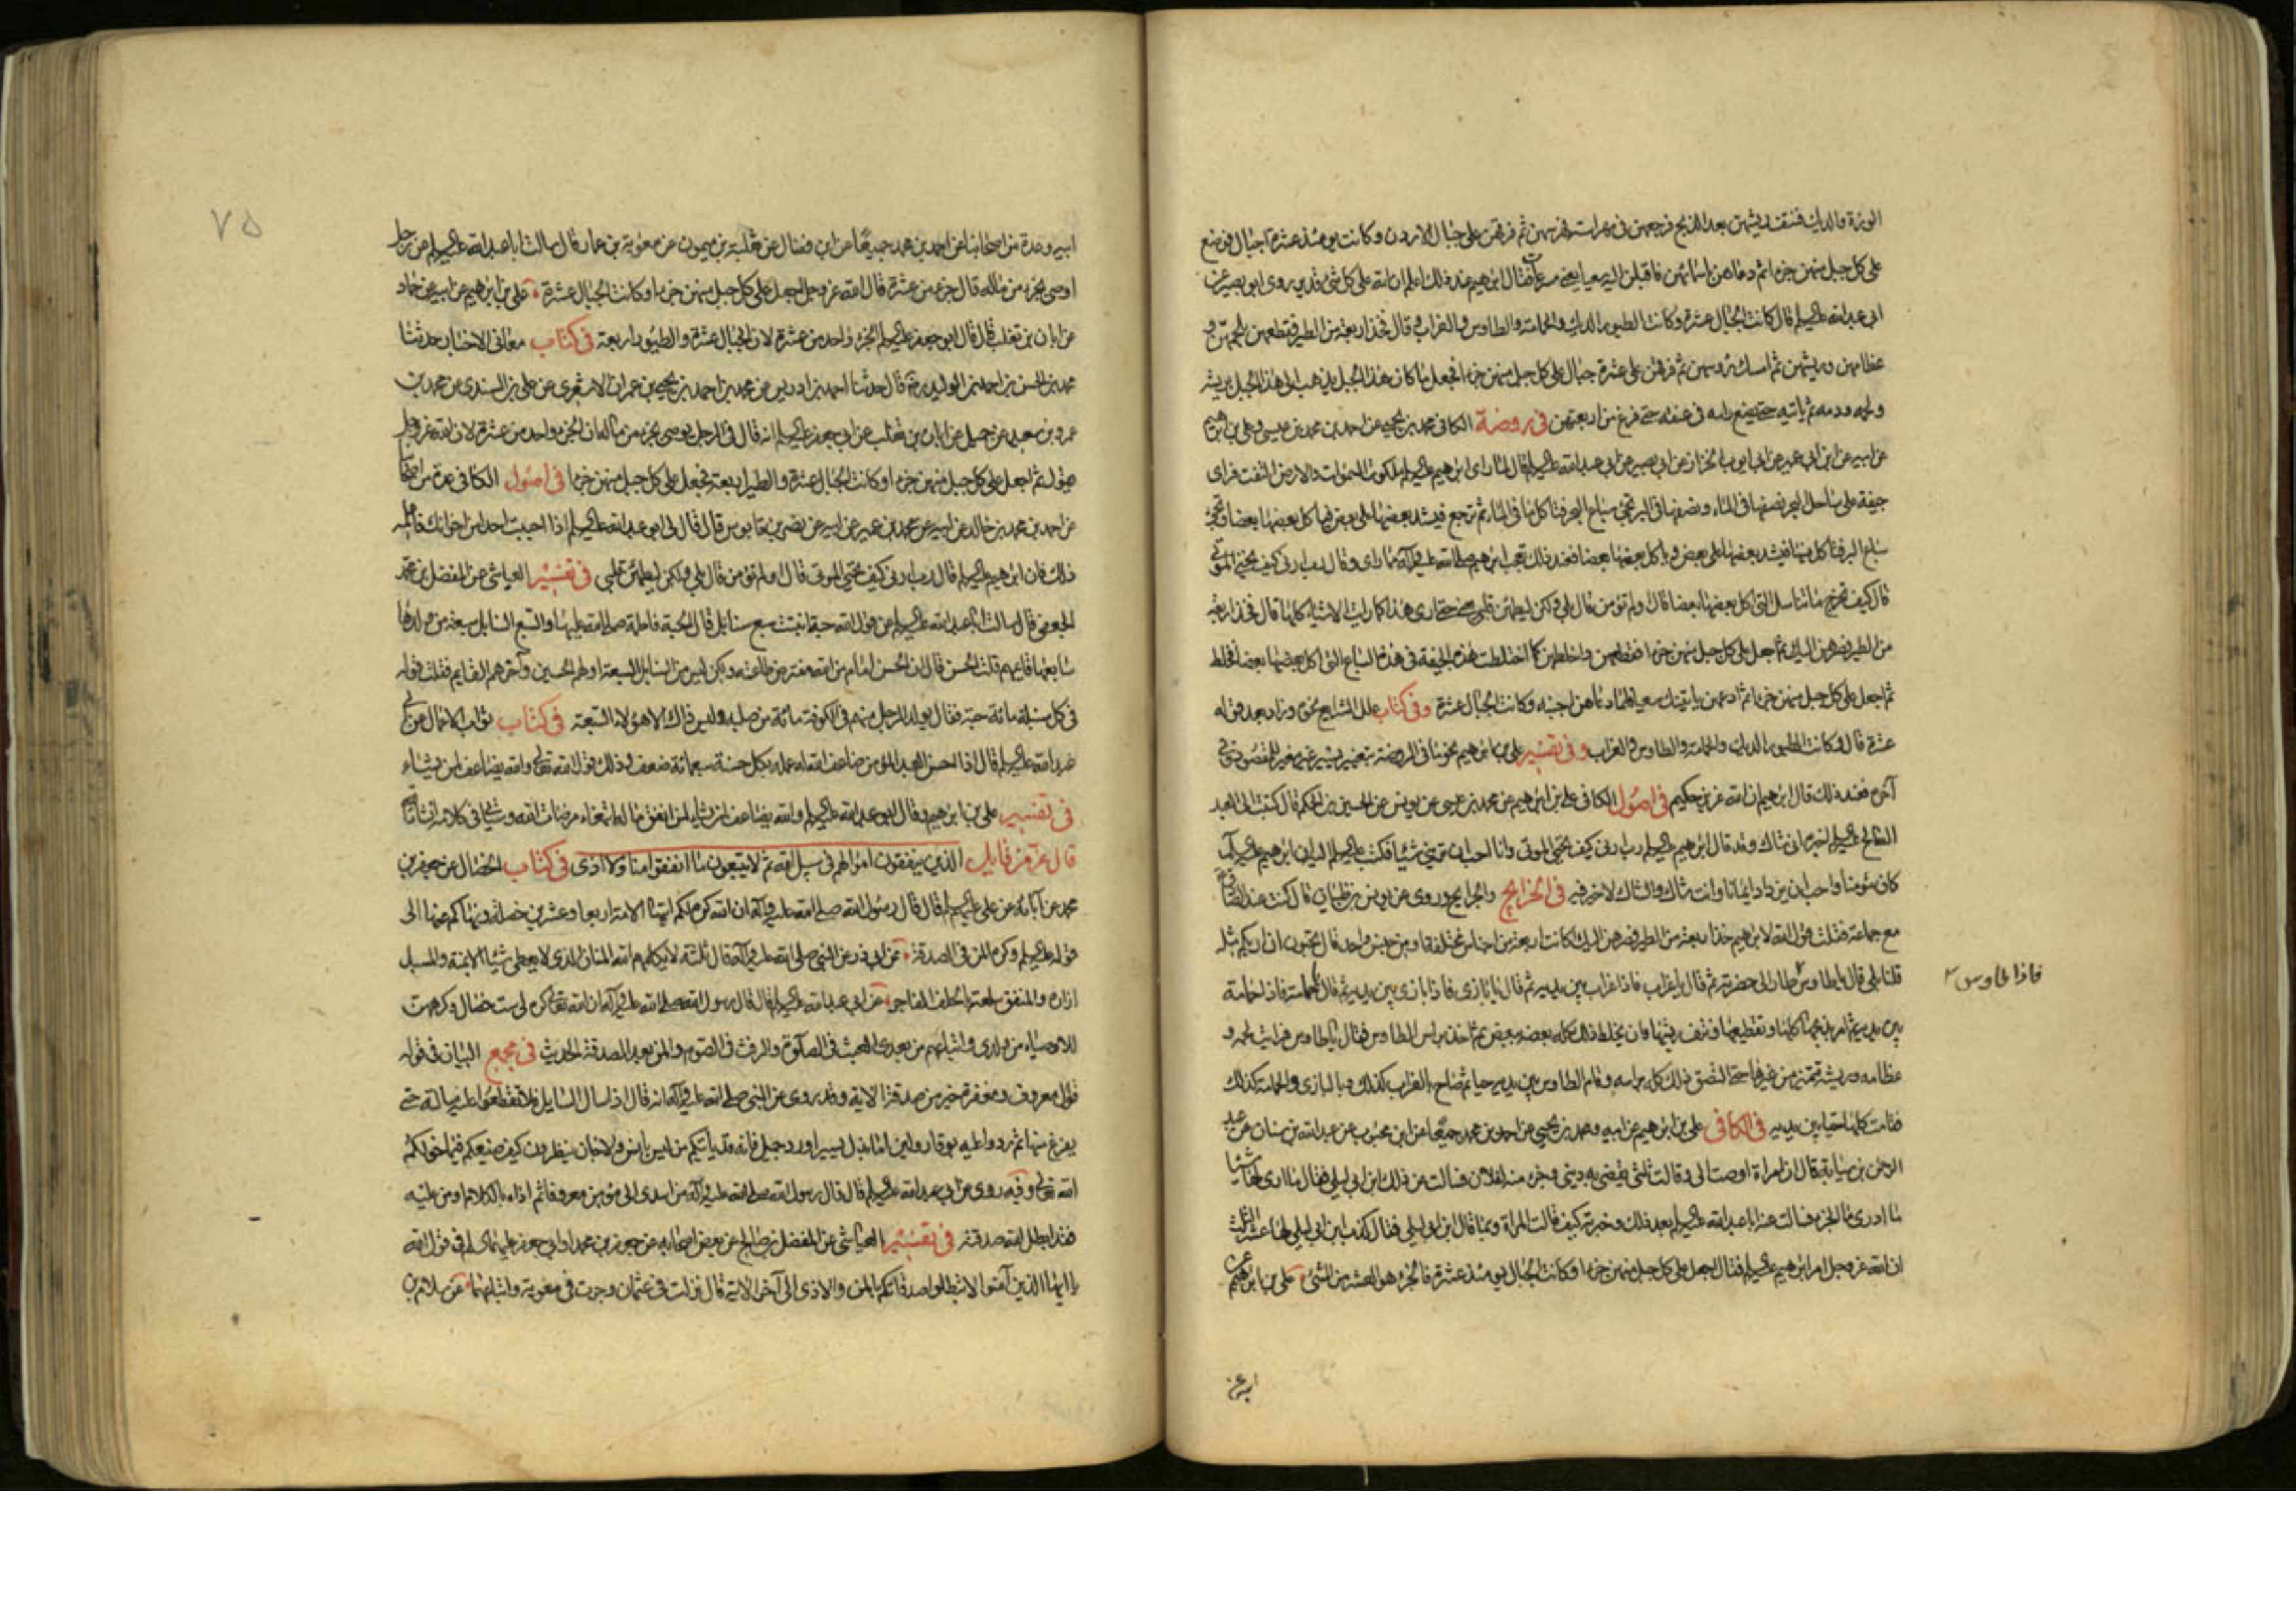 الوزة والديك فنتف ريشهن بعد الذبح ثم جعلهن في مهراسة فهرسهن ثم فرقهن على جبال الاردن وكانت يومئذ عشرة اجبال فوضع
على كل جبل منهن جزءا ثم دعاهن باسمائهن فاقبلن اليه سعيا يعني مسرعات فقال ابرهيم عند ذلك اعلم ان الله على كل شئ قدير وروى ابو بصير عن
ابي عبد الله عليه السلم قال كانت الجبال عشرة وكانت الطيور الديك والحمامة والطاوس والغراب وقال فخذ اربعة من الطير فقطعهن بلحمهن و
عظامهن وريشهن ثم امسك رؤسهن ثم فرقهن على عشرة جبال على كل جبل منهن جزء فجعل ما كان في هذا الجبل يذهب الى هذا الجبل بريشه
ولحمه ودمه ثم ياتيه حتى يضع راسه في عنقه حتى فرغ من اربعتهن في روضة الكافي محمد بن يحيى عن احمد بن محمد بن عيسى وعلي بن ابرهيم
عن ابيه عن ابن ابي عمير عن ابي ايوب الخزاز عن ابي بصير عن ابي عبد الله عليه السلم قال لما راى ابرهيم عليه السلم ملكوت السموات والارض التفت فراى
جيفة على ساحل البحر نصفها في الماء ونصفها في البر تجئ سباع البحر فتاكل ما في الماء ثم ترجع فيشد بعضها على بعض فياكل بعضها بعضا وتجئ
سباع البر فتاكل منها فيشد بعضها على بعض وياكل بعضها بعضا فعند ذلك تعجب ابرهيم صلى الله عليه وآله مما راى وقال رب ارني كيف تحيي الموتى
قال كيف تخرج ما تناسل التي اكل بعضها بعضا قال اولم تؤمن قال بلى ولكن ليطمئن قلبي يعني حتى ارى هذا كما رايت الاشياء كلها قال فخذ اربعة
من الطير فصرهن اليك ثم اجعل على كل جبل منهن جزءا فقطعهن واخلطهن كما اختلطت هذه الجيفة في هذه السباع التي اكل بعضها بعضا فخلط
ثم اجعل على كل جبل منهن جزءا ثم ادعهن ياتينك سعيا فلما دعاهن اجبنه وكانت الجبال عشرة وفي كتاب علل الشرايع نحوه وزاد بعد قوله
عشرة قال وكانت الطيور الديك والحمامة والطاوس والغراب وفي تفسير علي بن ابرهيم نحو ما في الروضة بتغيير يسير غير مغير للمقصود وفي
آخره فعند ذلك قال ابرهيم ان الله عزيز حكيم في اصول الكافي علي بن ابرهيم عن محمد بن عيسى عن يونس عن الحسين بن الحكم قال كتبت الى العبد
الصالح عليه السلم اخبره اني شاك وقد قال ابرهيم عليه السلم رب ارني كيف تحيي الموتى وانا احب ان تريني شيئا فكتب عليه السلم اليه ان ابرهيم عليه السلم
كان مؤمنا واحب ان يزداد ايمانا وانت شاك والشاك لا خير فيه في الخرايج والجرايح وروى عن يونس بن ظبيان قال كنت عند الصادق
مع جماعة فقلت قول الله لابرهيم خذ اربعة من الطير فصرهن اليك كانت اربعة من اجناس مختلفة او من جنس واحد قال تحبون ان اريكم مثله
قلنا بلى قال يا طاوس طار الى حضرته ثم قال يا غراب فاذا غراب بين يديه ثم قال يا بازي فاذا بازي بين يديه ثم قال يا حمامة فاذا حمامة
فاذا طاوس
بين يديه ثم امر بذبحها كلها وتقطيعها ونتف ريشها وان يخلط ذلك كله بعضه ببعض ثم اخذ براس الطاوس فقال يا طاوس فرايت لحمه و
عظامه وريشه تتميز من غيرها حتى التصق ذلك كله براسه وقام الطاوس بين يديه حيا ثم صاح بالغراب كذلك وبالبازي والحمامة كذلك
فقامت كلها احياء بين يديه في الكافي علي بن ابرهيم عن ابيه ومحمد بن يحيى عن احمد بن محمد جميعا عن ابن محبوب عن عبد الله بن سنان عن عبد
الرحمن بن سيابة قال ان امراة اوصت الى وقالت ثلثي يقضى به ديني وجزء منه لفلانة فسالت عن ذلك ابن ابي ليلى فقال ما ارى لها شيئا
ما ادري ما الجزء فسالت عنه ابا عبد الله عليه السلم بعد ذلك وخبرته كيف قالت المراة وبما قال ابن ابي ليلى فقال كذب ابن ابي ليلى لها عشر الثلث
ان الله عز وجل امر ابرهيم عليه السلم فقال اجعل على كل جبل منهن جزءا وكانت الجبال يومئذ عشرة فالجزء هو العشر من الشئ علي بن ابرهيم عن
ابيه وعدة من اصحابنا عن احمد بن محمد جميعا عن ابن فضال عن ثعلبة بن ميمون عن معوية بن عمار قال سالت ابا عبد الله عليه السلم عن رجل
٧٥
اوصى بجزء من ماله قال جزء من عشرة قال الله عز وجل اجعل على كل جبل منهن جزءا وكانت الجبال عشرة علي بن ابرهيم عن ابيه عن حماد
عن ابان بن تغلب قال قال ابو جعفر عليه السلم الجزء واحد من عشرة لان الجبال عشرة والطيور اربعة في كتاب معاني الاخبار حدثنا
محمد بن الحسن بن احمد بن الوليد ره قال حدثنا احمد بن ادريس عن محمد بن احمد بن يحيى بن عمران الاشعري عن علي بن السندي عن محمد بن
عمرو بن سعيد عن جميل عن ابان بن تغلب عن ابي جعفر عليه السلم انه قال في الرجل يوصي بجزء من ماله ان الجزء واحد من عشرة لان الله عز وجل
يقول ثم اجعل على كل جبل منهن جزءا وكانت الجبال عشرة والطير اربعة فجعل على كل جبل منهن جزءا في اصول الكافي عدة من اصحابنا
عن احمد بن محمد بن خالد عن ابيه عن محمد بن عمير عن ابيه عن نصر بن قابوس قال قال لي ابو عبد الله عليه السلم اذا احببت احدا من اخوانك فاعلمه
ذلك فان ابرهيم عليه السلم قال رب ارني كيف تحيي الموتى قال اولم تؤمن قال بلى ولكن ليطمئن قلبي في تفسير العياشي عن المفضل بن محمد
الجعفي قال سالت ابا عبد الله عليه السلم عن قول الله حبة انبتت سبع سنابل قال الحبة فاطمة صلى الله عليها والسبع السنابل سبعة من ولدها
سابعها قائمهم قلت الحسن قال ان الحسن امام من الله مفترض طاعته ولكن ليس من السنابل السبعة اولهم الحسين وآخرهم القايم فقلت قوله
في كل سنبلة مائة حبة فقال يولد للرجل منهم في الكوفة مائة من صلبه وليس ذاك الا هؤلاء السبعة في كتاب ثواب الاعمال عن ابي
عبد الله عليه السلم قال اذا احسن العبد المؤمن ضاعف الله له عمله بكل حسنة سبعمائة ضعف وذلك قول الله تعالى والله يضاعف لمن يشاء
في تفسير علي بن ابرهيم وقال ابو عبد الله عليه السلم والله يضاعف لمن يشاء لمن انفق ماله ابتغاء مرضات الله وسياتي في كلامه ان شاء الله
قال عز من قايل الذين ينفقون اموالهم في سبيل الله ثم لا يتبعون ما انفقوا منا ولا اذى في كتاب الخصال عن جعفر بن
محمد عن آبائه عن علي عليهم السلم قال قال رسول الله صلى الله عليه وآله ان الله كره لكم ايتها الامة اربعا وعشرين خصلة ونهاكم عنها الى
قوله عليه السلم وكره المن في الصدقة عن ابي ذر عن النبي صلى الله عليه وآله قال ثلثة لا يكلمهم الله المنان الذي لا يعطي شيئا الا بمنة والمسبل
ازاره والمنفق سلعته بالحلف الفاجر عن ابي عبد الله عليه السلم قال قال رسول الله صلى الله عليه وآله ان الله تعالى كره لي ست خصال وكرهت
للاوصياء من ولدي واتباعهم من بعدي العبث في الصلوة والرفث في الصوم والمن بعد الصدقة الحديث في مجمع البيان في قوله
قول معروف ومغفرة خير من صدقة الاية وقد روى عن النبي صلى الله عليه وآله انه قال اذا سال السايل فلا تقطعوا عليه مسالته حتى
يفرغ منها ثم ردوا عليه بوقار ولين اما بذل يسير او رد جميل فانه قد ياتيكم من ليس بانس ولا جان ينظرون كيف صنيعكم فيما خولكم
الله تعالى وفيه روى عن ابي عبد الله عليه السلم قال قال رسول الله صلى الله عليه وآله من اسدى الى مؤمن معروفا ثم اذاه بالكلام او من عليه
فقد ابطل الله صدقته في تفسير العياشي عن المفضل بن صالح عن بعض اصحابه عن جعفر بن محمد او ابي جعفر عليهما السلم في قول الله
يا ايها الذين آمنوا لا تبطلوا صدقاتكم بالمن والاذى الى آخر الاية قال نزلت في عثمان وجرت في معوية واتباعهما عن سلام بن